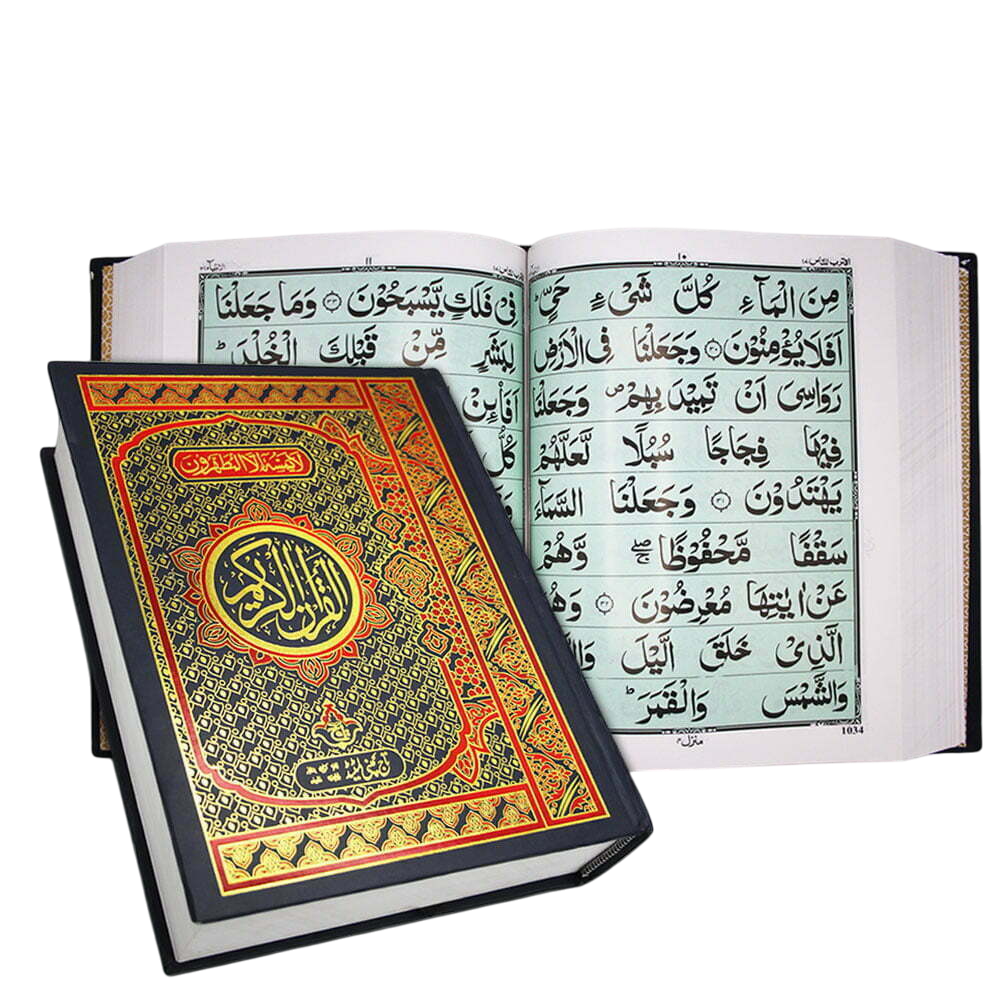 اقترب للناس ١٧
١٠
مِنَ الْمَآءِ كُلَّ شَیْءٍ حَیٍّ ؕ
اَفَلَا یُؤْمِنُوْنَ ٣٠ وَجَعَلْنَا فِی الْاَرْضِ
رَوَاسِیَ اَنْ تَمِیْدَ بِهِمْ ۪ وَجَعَلْنَا
فِیْهَا فِجَاجًا سُبُلًا لَّعَلَّهُمْ
یَهْتَدُوْنَ ٣١ وَجَعَلْنَا السَّمَآءَ
سَقْفًا مَّحْفُوْظًا ۖۚ وَّهُمْ
عَنْ اٰیٰتِهَا مُعْرِضُوْنَ ٣٢ وَهُوَ
الَّذِیْ خَلَقَ الَّیْلَ وَالنَّهَارَ
وَالشَّمْسَ وَالْقَمَرَ ؕ
منزل ٤
1034
١١
فِیْ فَلَكٍ یَّسْبَحُوْنَ ٣٣ وَمَا جَعَلْنَا
لِبَشَرٍ مِّنْ قَبْلِكَ الْخُلْدَ ؕ
اَفَا۟ىِٕنْ
كُلُّ
لا يمسه الا المطهرون
القرآن الكريم
تاج کمپنی